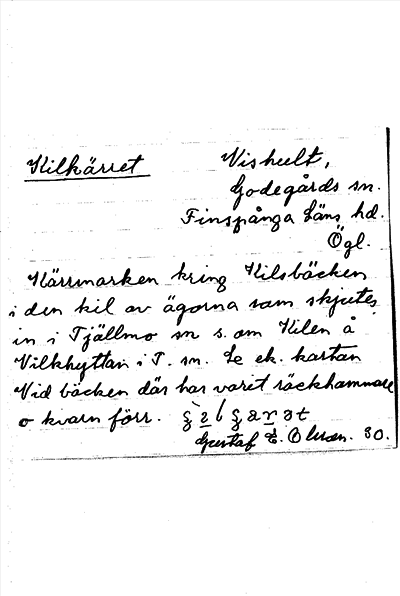 Kilkärret
Vishult,
Godegårds sn.
Finspånga läns hd.
Ögl.
Kärrmarken kring Kilsbäcken
i den kil av ägorna som skjutes
in i Tjällmo sn s. om Kilen å
Vilkhyttan i T. sn. Se ek. kartan
Vid bäcken där har varit räckhammare
o kvarn förr.
Gustaf E. Olsson. 30.